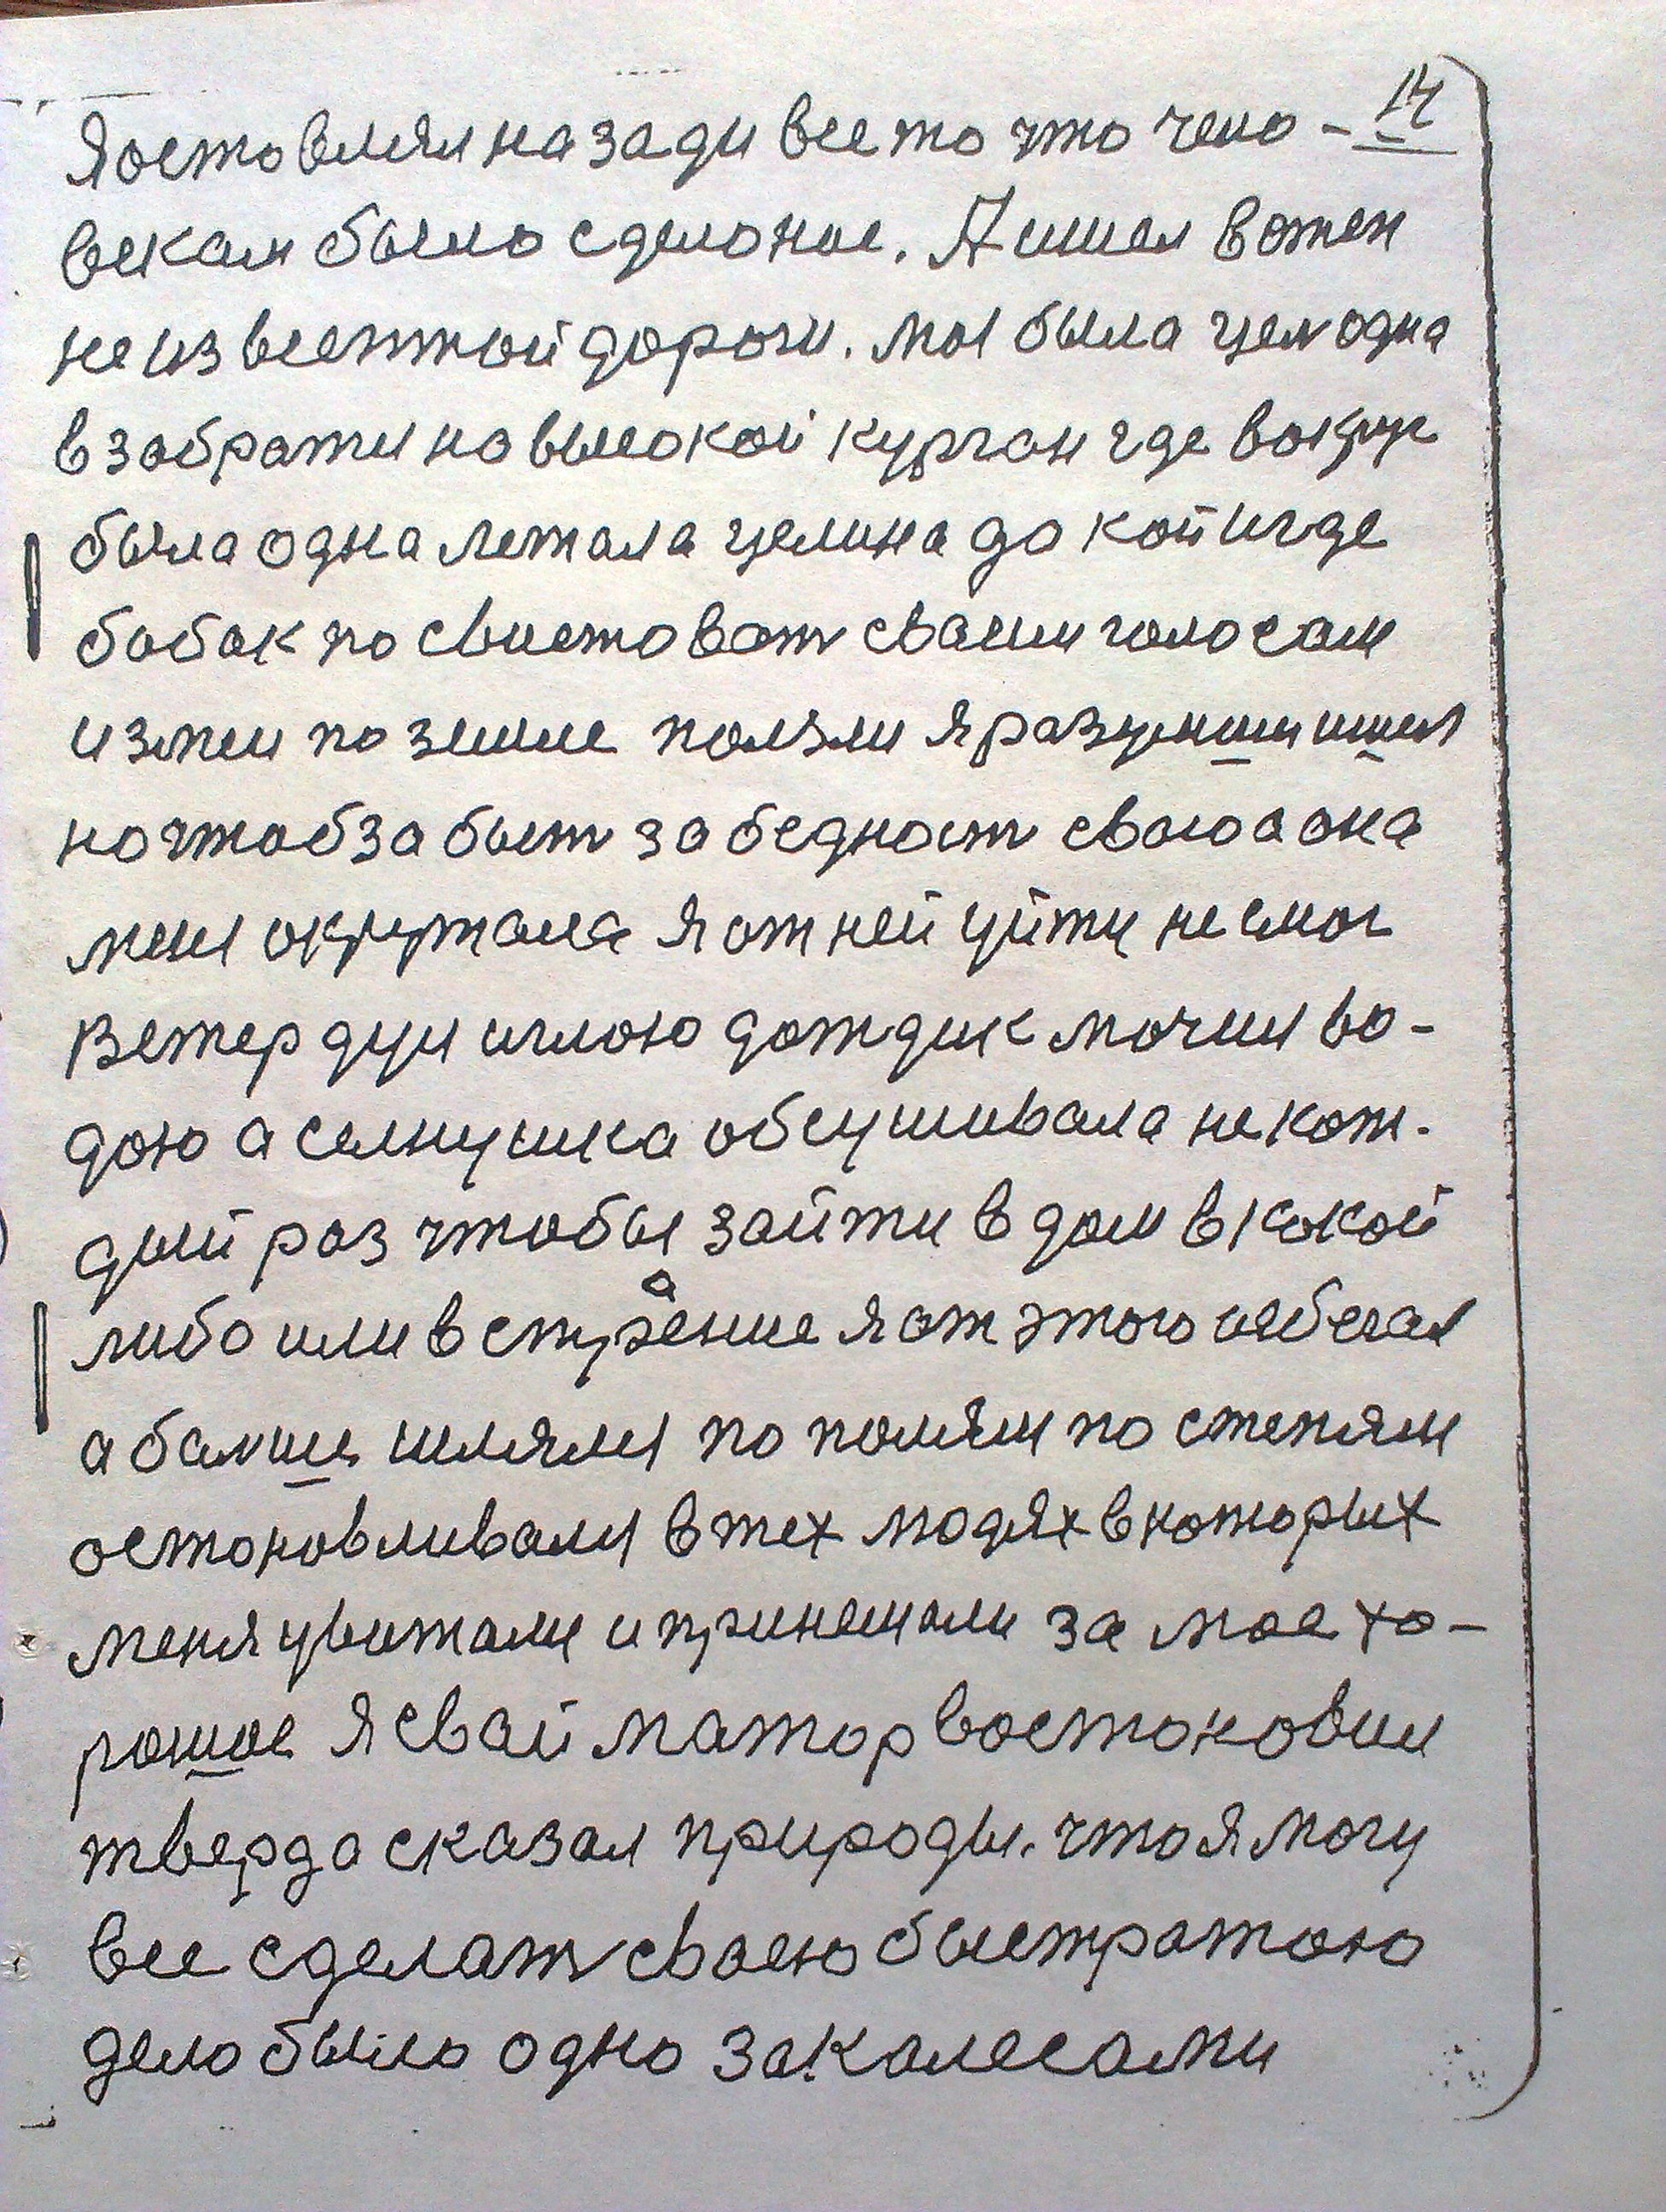 14
Я остовлял на зади все то что чело-
векам было сделоное. А ишел вотем
не известной дороги. моя была цел одна
в зобратся но высокой курган где вокруг
была одна лежала целина до кой и где
бобак по свистоват своем голосам
и змеи по земле ползли я разумнши ишел
но чтоб забыт за бедност своюа она
меня окружала я от ней уйти не смог
Ветер дул иглою дождик мочил во-
дою а солнушка обсушивала не кож-
дый роз чтобы зайти в дом в кокой
либо или в страение я от этого избегал
а больши шлялся по полям по степям
остоновливался в тех людях в которых
меня увижали и принемали за мое хо-
рошое я свай матор востоновил
твердо сказал природы. что я могу
все сделат своею быстратою
дело было одно за калесами